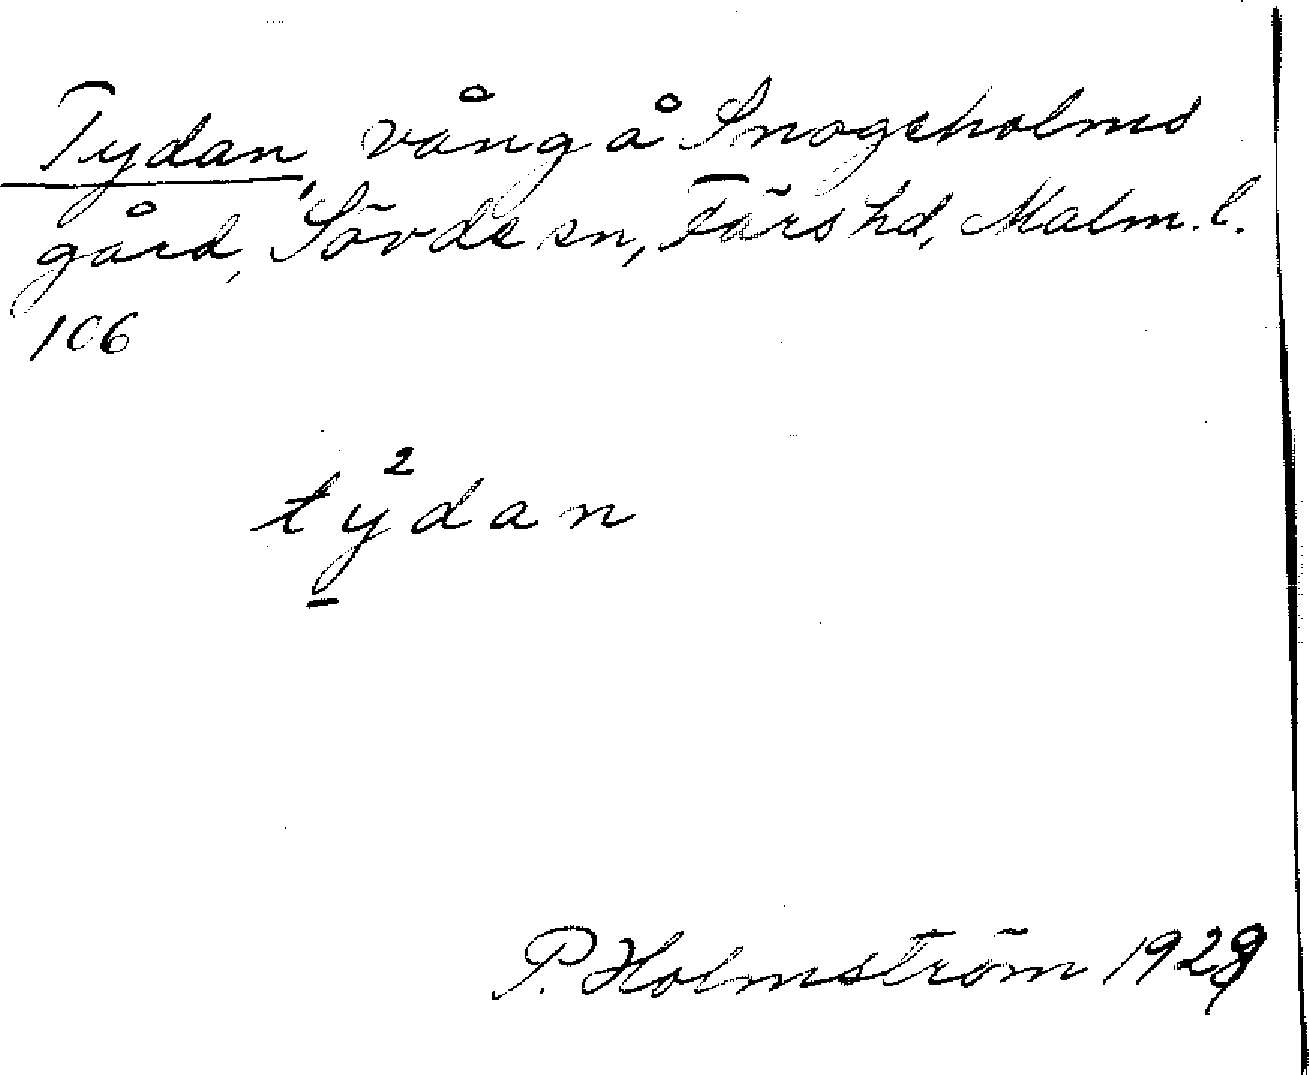 Tydan, vång å Snogeholms
gård, Sövde sn, Färs hd, Malm. l.
106
2
tydan
P. Holmström 1929